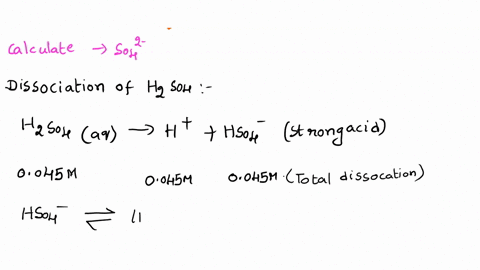 Calculate → SO4^2-
Dissociation of H2SO4 :-
H2SO4 (aq) → H+ + HSO4^- (Strong acid)
0.045M 0.045M 0.045M (Total dissocation)
HSO4^- ⇌